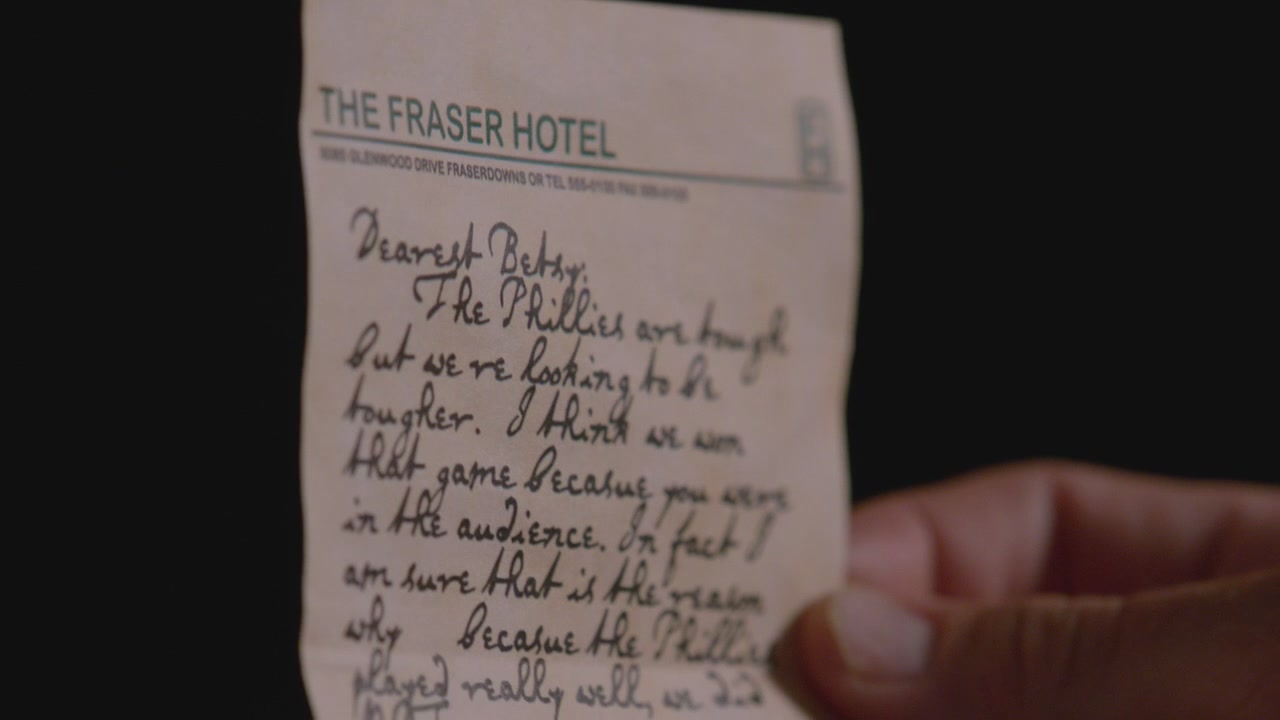 THE FRASER HOTEL
GLENWOOD DRIVE FRASERDOWNS OR TEL 555-0100 FAX
Dearest Betsy:
The Phillies are tough
but we're looking to be
tougher. I think we won
that game becasue you were
in the audience. In fact I
am sure that is the reason
why becasue the Phillies
played really well, we did
NOT